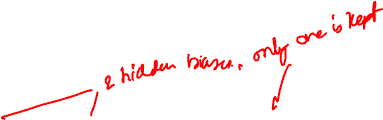 2 hidden biases. only one is kept